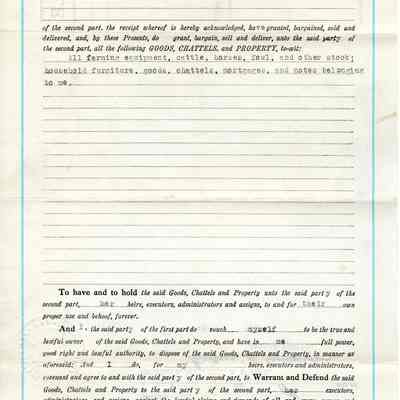 of the second part, the receipt whereof is hereby acknowledged, have grantent, bargained, sold and
delivered, and, by these Presents, do grant, bargain, sell and deliver, unto the said party of
the second part, all the following GOODS, CHATTELS, and PROPERTY, to-wit:
All farming equipment, cattle, horses, foul, and other stock;
household furniture, goods, chattels, mortgages, and notes belonging
to me.
To have and to hold the said Goods, Chattels and Property unto the said party of the
second part, her heirs, executors, administrators and assigns, to and for their own
proper use and behoof, forever.
And I the said party of the first part do vouch myself to be the true and
lawful owner of the said Goods, Chattels and Property, and have in me full power,
good right and lawful authority, to dispose of the said Goods, Chattels and Property, in manner as
aforesaid; And I do, for my heirs, executors and administrators,
covenant and agree to and with the said party of the second part, to Warrant and Defend the said
Goods, Chattels and Property to the said party of the second part, her executors,
administrators and assigns, against the lawful claims and demands of all and